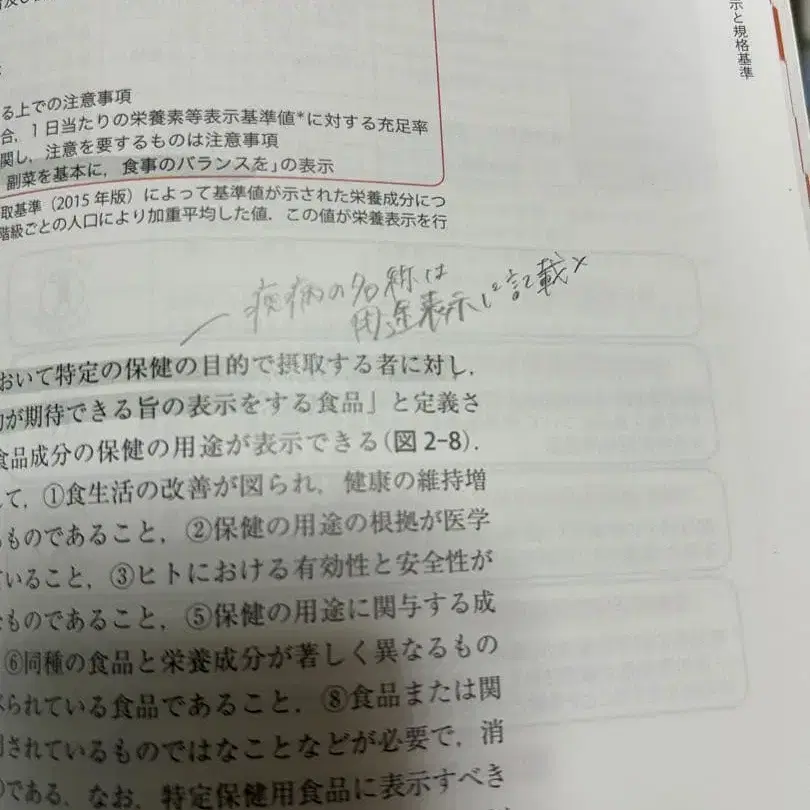 示と規格基準
る上での注意事項
合，1日当たりの栄養素等表示基準値*に対する充足率
関し，注意を要するものは注意事項
副菜を基本に，食事のバランスを」の表示
取基準（2015年版）によって基準値が示された栄養成分につ
階級ごとの人口により加重平均した値．この値が栄養表示を行
疾病の名称は
用途表示に記載×
おいて特定の保健の目的で摂取する者に対し，
が期待できる旨の表示をする食品」と定義さ
食品成分の保健の用途が表示できる（図2-8）．
て，①食生活の改善が図られ，健康の維持増
ものであること，②保健の用途の根拠が医学
いること，③ヒトにおける有効性と安全性が
なものであること，⑤保健の用途に関与する成
⑥同種の食品と栄養成分が著しく異なるもの
べられている食品であること，⑧食品または関
されているものではなことなどが必要で，消
である．なお，特定保健用食品に表示すべき